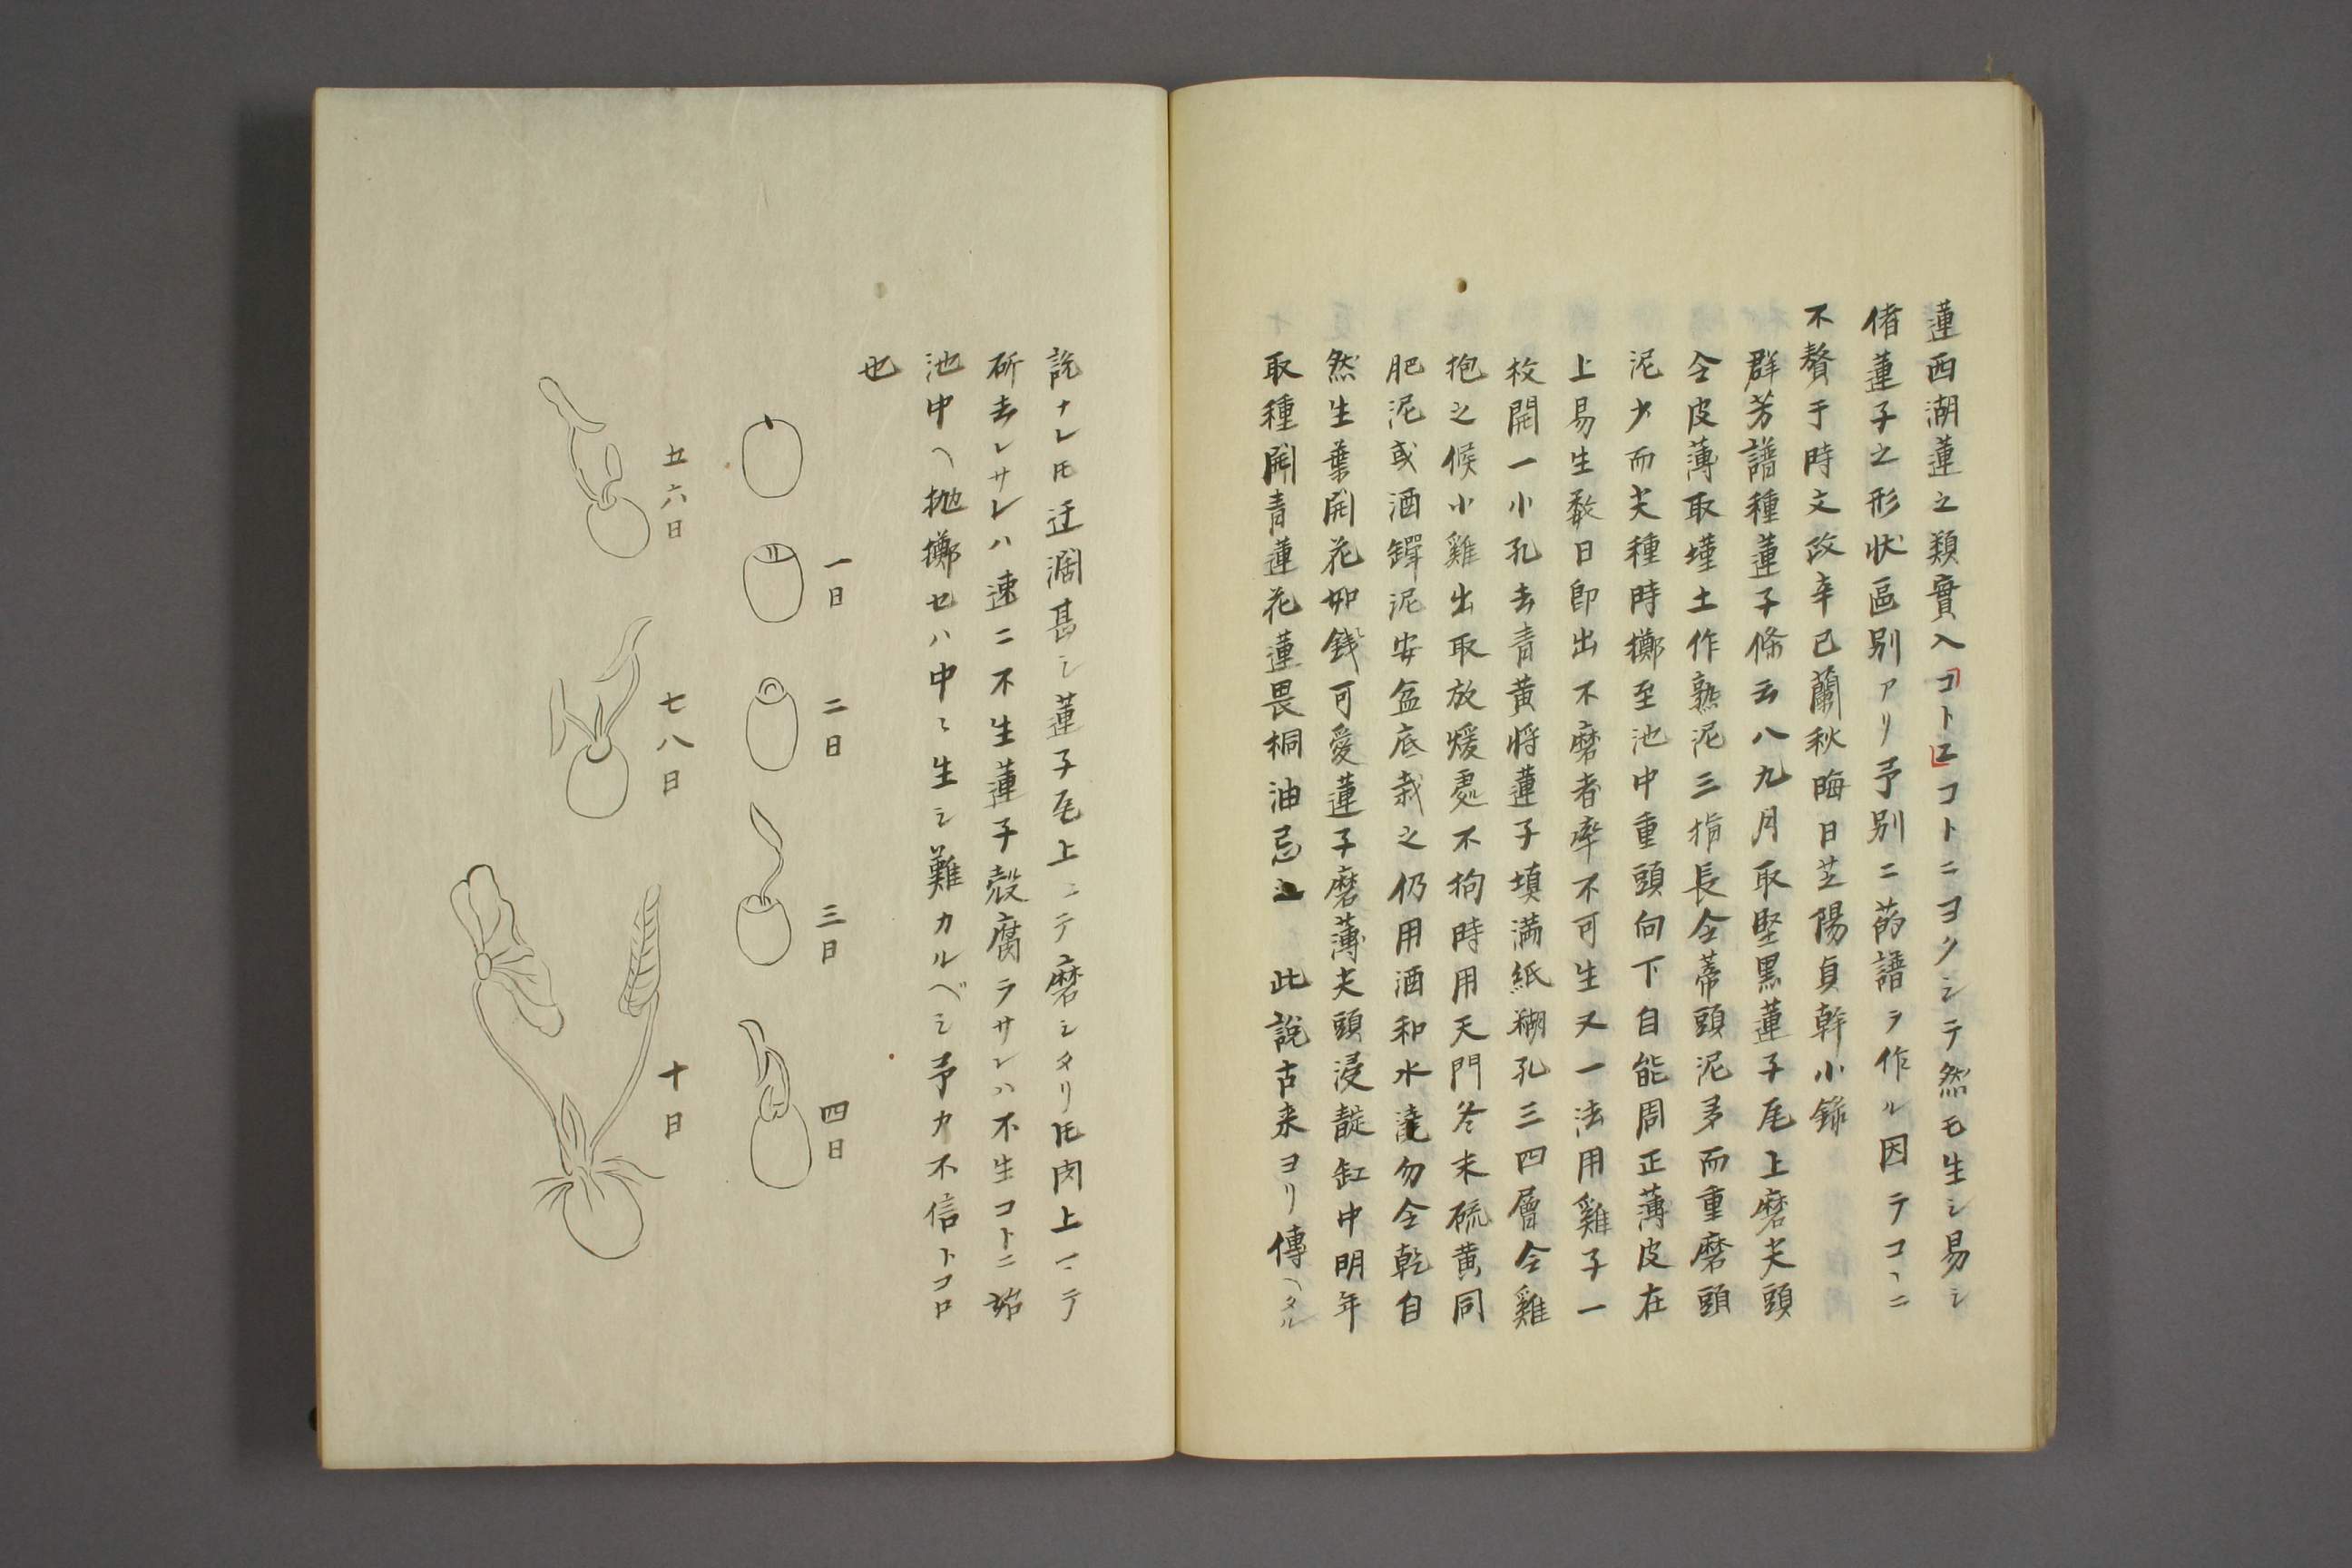 蓮西湖蓮之類實入コトエコトニヨクシテ然モ生シ易シ
偖蓮子之形状區別アリ予別ニ菂譜ヲ作ル因テコヽニ
不贅于時文政辛巳蘭秋晦日芝陽貞幹小錄
群芳譜種蓮子條云八九月取堅黒蓮子尾上磨尖頭
令皮薄取墐土作熟泥三指長令蔕頭泥多而重磨頭
泥少而尖種時擲至池中重頭向下自能周正薄皮在
上易生數日即出不磨者率不可生又一法用雞子一
枚開一小孔去青黄将蓮子填満紙糊孔三四層令雞
抱之候小雞出取放煖處不拘時用天門冬末硫黄同
肥泥或酒罈泥安盆底栽之仍用酒和水澆勿令乾自
然生葉開花如錢可愛蓮子磨薄尖頭浸靛缸中明年
取種開青蓮花蓮畏桐油忌之 此説古来ヨリ傳ヘタル
説ナレ𪜈迂濶甚シ蓮子尾上ニテ磨シタリ𪜈肉上マテ
斫去レサレハ速ニ不生蓮子殻腐ラサレハ不生コトニ
池中ヘ抛擲セハ中〻生シ難カルベシ予カ不信トコロ
也
一日
二日
三日
四日
五六日
七八日
十日